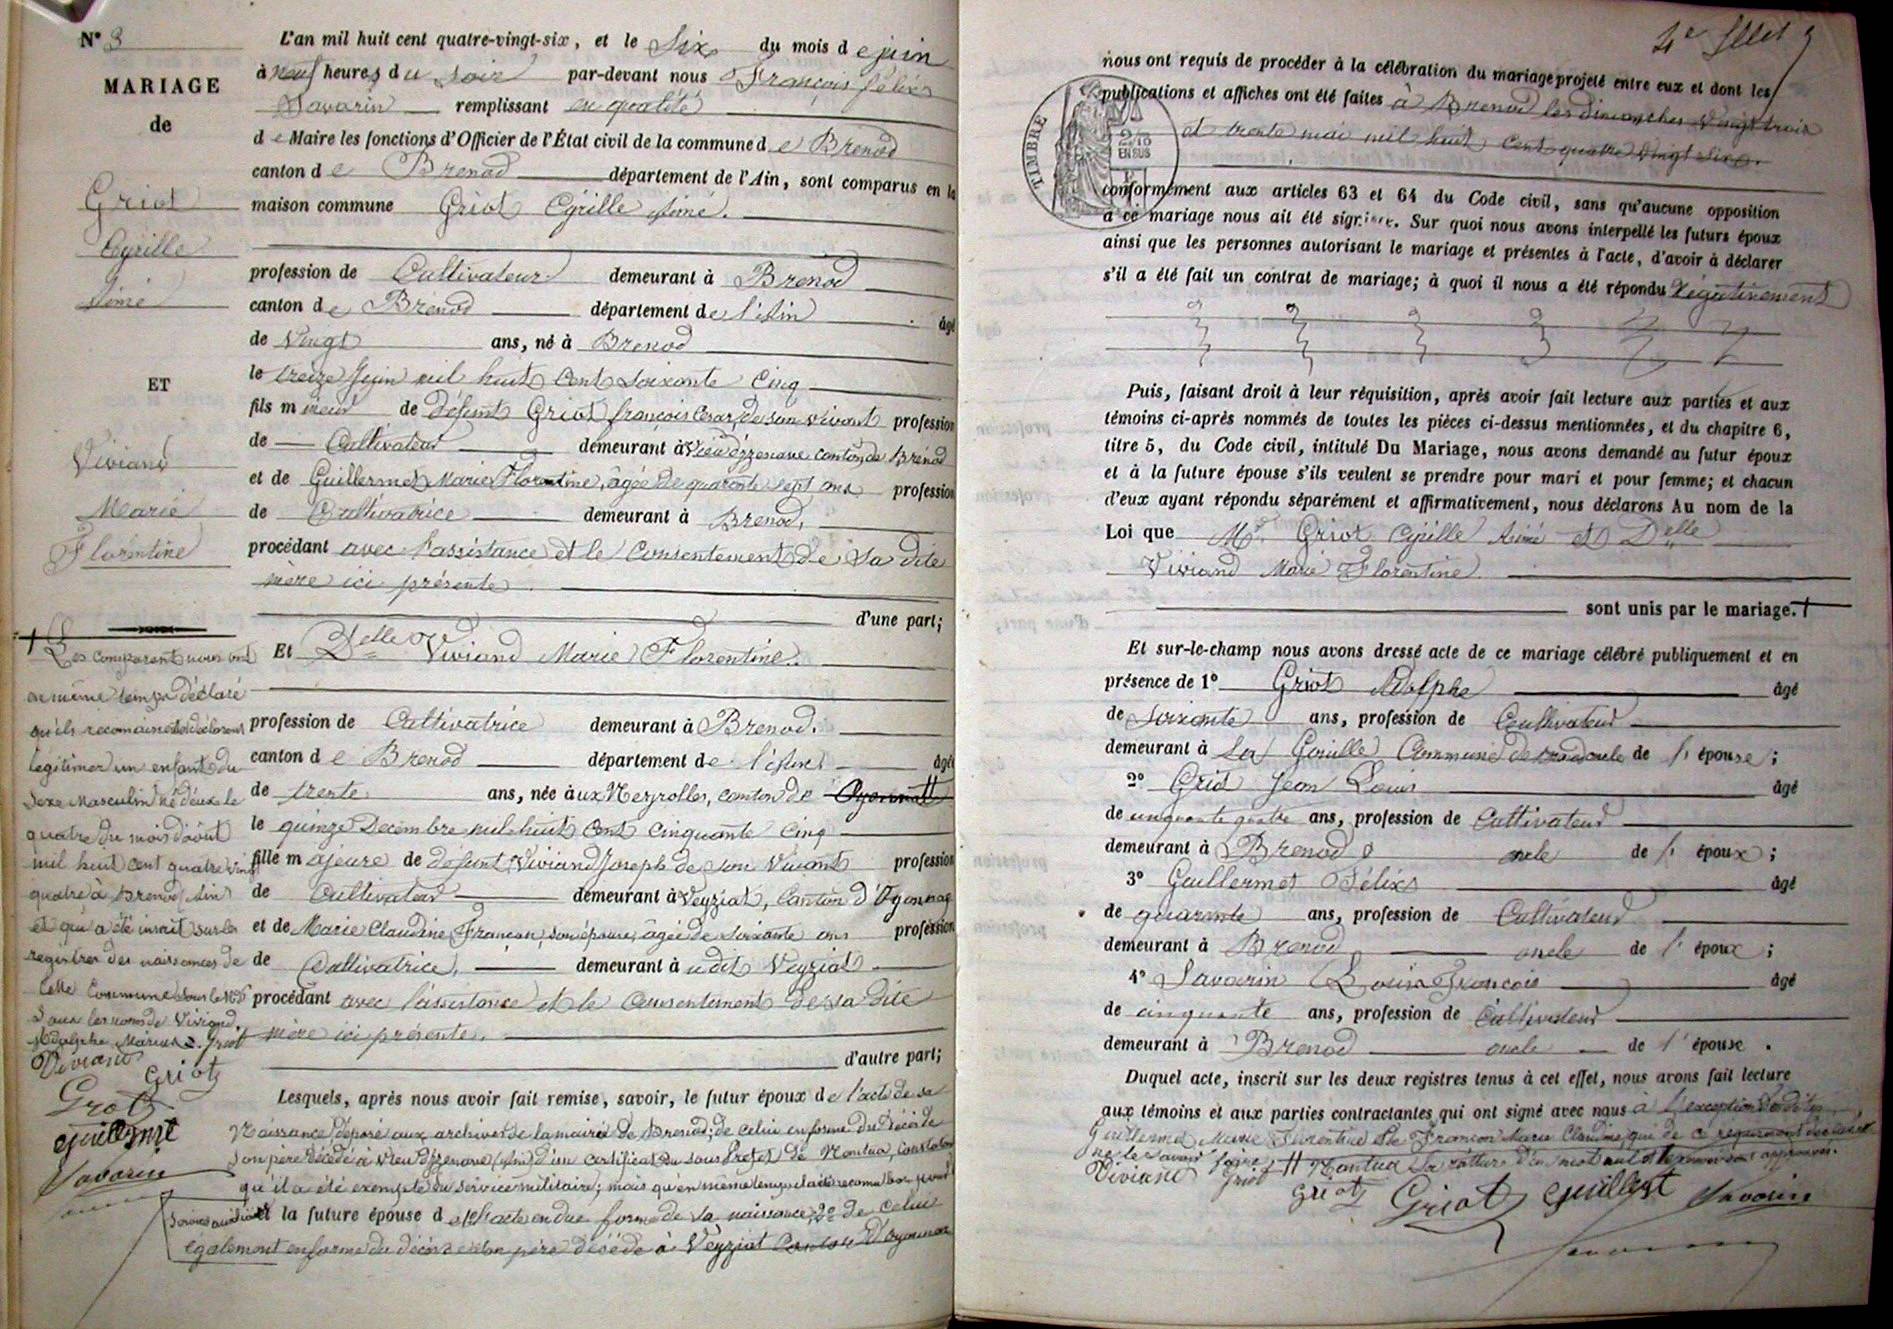 N° 3
MARIAGE
de
Griot
Cyrille
Aimé
ET
Viviand
Marie
Florentine
L'an mil huit cent quatre-vingt-six, et le Six du mois de juin
à neuf heures du soir par-devant nous François Félix
Savarin remplissant en qualité
de Maire les fonctions d'Officier de l'État civil de la commune de Brenod
canton de Brenod département de l'Ain, sont comparus en la
maison commune Griot Cyrille Aimé.
profession de Cultivateur demeurant à Brenod
canton de Brenod département de l'Ain âgé
de Vingt ans, né à Brenod
le treize Juin mil huit cent soixante cinq
fils mineur de défunt Griot françois Cesar, de son vivant profession
de Cultivateur demeurant à Vieu d'izenave canton de Brénod
et de Guillermet Marie Florentine, âgée de quarante sept ans profession
de Cultivatrice demeurant à Brenod,
procédant avec l'assistance et le Consentement de sa dite
mère ici présente
d'une part;
Et Delle Viviand Marie Florentine.
profession de Cultivatrice demeurant à Brenod.
canton de Brenod département de l'Ain âgée
de trente ans, née aux Neyrolles, canton de Oyonnax #
le quinze Decembre mil huit cent cinquante cinq
fille majeure de défunt Viviand Joseph de son Vivant profession
de Cultivateur demeurant à Veyziat, Canton d'Oyonnax
et de Marie Claudine Françon, son épouse, âgée de soixante ans profession
de Cultivatrice, demeurant à udit Veyziat
procédant avec l'assistance et le Consentement de sa dite
mère ici présente.
d'autre part;
Lesquels, après nous avoir fait remise, savoir, le futur époux de l'acte de sa
Naissance déposé aux archives de la mairie de Brenod; de celui en forme du Décès de
son père décédé à Vieu d'izenave (Ain) d'un certificat du sous Préfet de Nantua, constatant
qu'il a été exempté du service militaire; mais qu'en même temps il a été reconnu bon pour le
service auxiliaire et la future épouse de l'acte en due forme de sa naissance, 2° de celui
également en forme du décès de son père décédé à Veyziat Canton d'Oyonnax
+ Les comparents nous ont
en même temps déclaré
qu'ils reconnaissent et déclarent
légitimer un enfant du
sexe Masculin né d'eux le
quatre du mois d'août
mil huit cent quatre vingt
quatre à Brenod (Ain)
et qui a été inscrit sur les
registres des naissances de
cette Commune sous le N°
sous les noms de Viviand
Adolphe Marius. Griot
Viviand
Griot
Griot
Guillermet
Savarin
4e fllet
nous ont requis de procéder à la célébration du mariage projeté entre eux et dont les
publications et affiches ont été faites à Brenod les Dimanches Vingt trois
et trente mai mil huit cent quatre vingt six.
TIMBRE
2/10
EN SUS
conformément aux articles 63 et 64 du Code civil, sans qu'aucune opposition
à ce mariage nous ait été signifiée. Sur quoi nous avons interpellé les futurs époux
ainsi que les personnes autorisant le mariage et présentes à l'acte, d'avoir à déclarer
s'il a été fait un contrat de mariage; à quoi il nous a été répondu Négativement
Puis, faisant droit à leur réquisition, après avoir fait lecture aux parties et aux
témoins ci-après nommés de toutes les pièces ci-dessus mentionnées, et du chapitre 6,
titre 5, du Code civil, intitulé Du Mariage, nous avons demandé au futur époux
et à la future épouse s'ils veulent se prendre pour mari et pour femme; et chacun
d'eux ayant répondu séparément et affirmativement, nous déclarons Au nom de la
Loi que Mr. Griot Cyrille Aimé et Delle
Viviand Marie Florentine
sont unis par le mariage. +
Et sur-le-champ nous avons dressé acte de ce mariage célébré publiquement et en
présence de 1° Griot Adolphe âgé
de soixante ans, profession de Cultivateur
demeurant à La Gouille Commune de oncle de l'épouse;
2° Griot Jean Louis âgé
de cinquante quatre ans, profession de Cultivateur
demeurant à Brenod oncle de l'époux;
3° Guillermet Félix âgé
de quarante ans, profession de Cultivateur
demeurant à Brenod oncle de l'époux;
4° Savarin Louis François âgé
de cinquante ans, profession de Cultivateur
demeurant à Brenod oncle de l'épouse.
Duquel acte, inscrit sur les deux registres tenus à cet effet, nous avons fait lecture
aux témoins et aux parties contractantes qui ont signé avec nous à l'exception des dites
Guillermet Marie Florentine et Françon Marie Claudine, qui de ce requis ont déclaré
ne le savoir faire # Nantua La rature d'un mot nul
Viviand Griot Griot Griot Guillermet Savarin